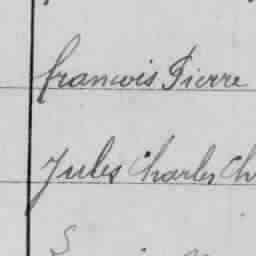 francois Pierre
Jules Charles Ch
S